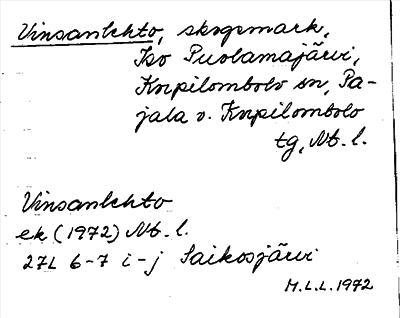 Vinsanlehto, skogsmark,
Iso Puolamajärvi,
Korpilombolo sn, Pa-
jala o. Korpilombolo
tg, Nb. l.
Vinsanlehto
ek (1972) Nb. l.
27L 6-7 i-j Saikosjärvi
M.L.L. 1972